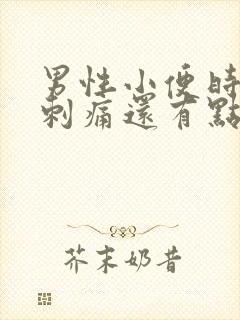 男性小便時
刺痛還有點
芥末奶昔